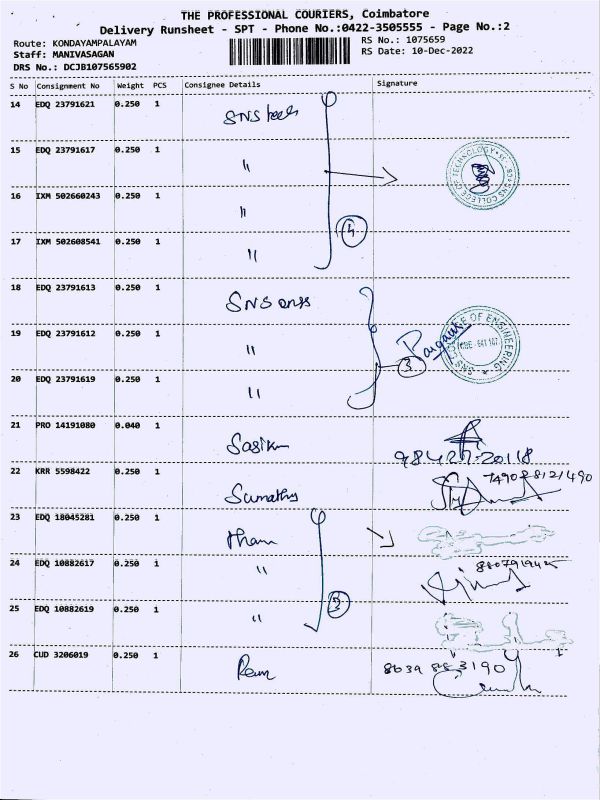 THE PROFESSIONAL COURIERS, Coimbatore
Delivery Runsheet - SPT - Phone No.:0422-3505555 - Page No.:2
Route: KONDAYAMPALAYAM
RS No.: 1075659
Staff: MANIVASAGAN
RS Date: 10-Dec-2022
DRS No.: DCJB107565902
S No Consignment No Weight PCS Consignee Details Signature
14 EDQ 23791621 0.250 1 SNS
15 EDQ 23791617 0.250 1 "
16 IXM 502660243 0.250 1 "
4
17 IXM 502608541 0.250 1 "
18 EDQ 23791613 0.250 1 SNS
19 EDQ 23791612 0.250 1 "
3
20 EDQ 23791619 0.250 1 "
21 PRO 14191080 0.040 1
22 KRR 5598422 0.250 1 Sumathy
23 EDQ 18045281 0.250 1
24 EDQ 10882617 0.250 1 "
3
25 EDQ 10882619 0.250 1 "
26 CUD 3206019 0.250 1